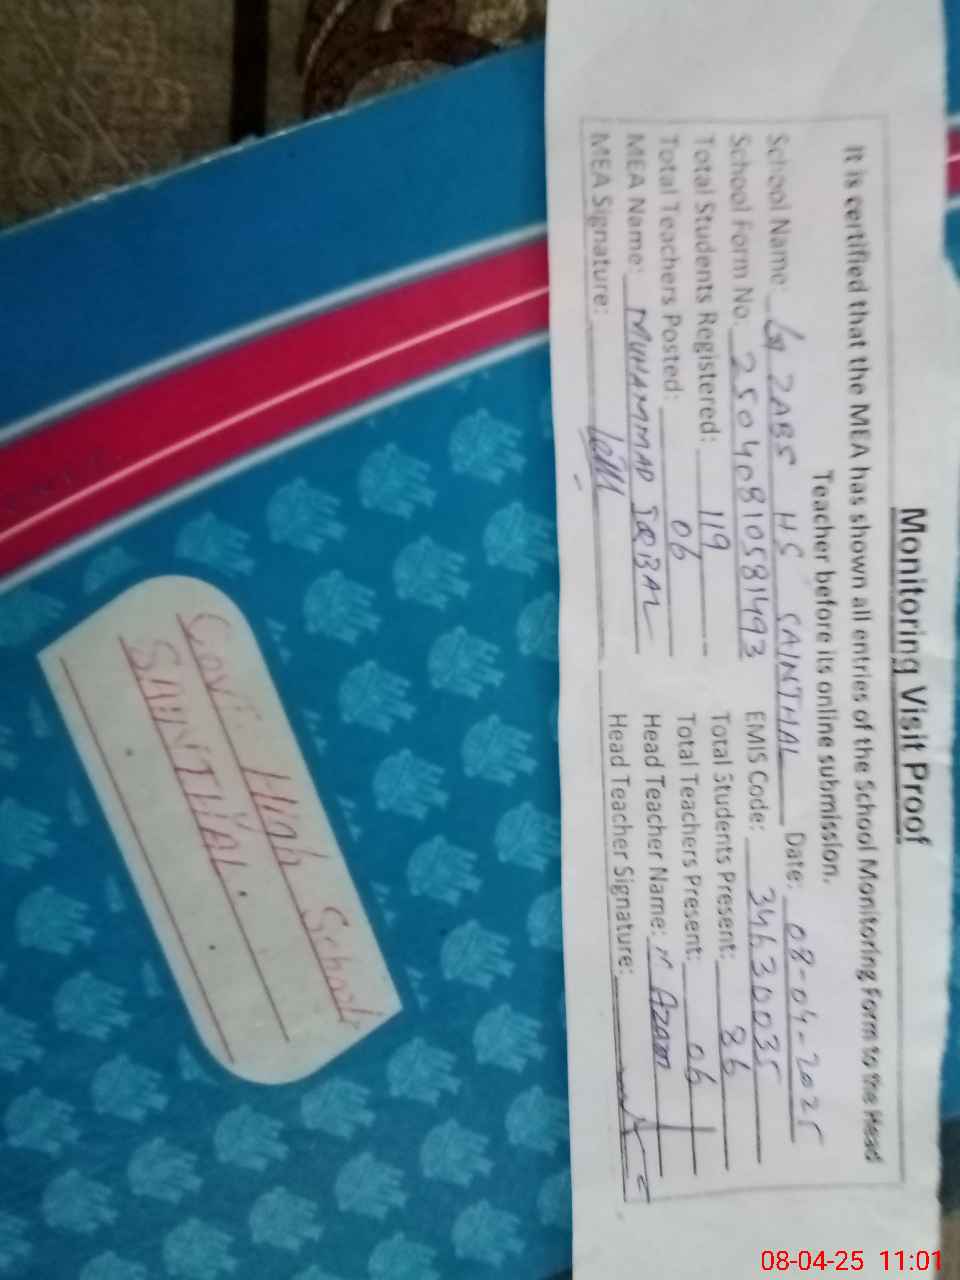 Monitoring Visit Proof
It is certified that the MEA has shown all entries of the School Monitoring Form to the Head
Teacher before its online submission.
School Name: HS SAINTHAL Date: 08-04-2025
School Form No. 25040810581493 EMIS Code: 34630035
Total Students Registered: 119 Total Students Present: 86
Total Teachers Posted: 06 Total Teachers Present: 06
MEA Name: MUHAMMAD IQBAL Head Teacher Name: M Azam
MEA Signature: Head Teacher Signature:
Govt High School
SAINTHAL.
08-04-25 11:01